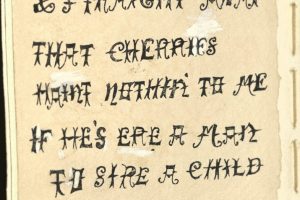 THAT CHERRIES
HAINT NOTHIN' TO ME
IF HE'S ERE A MAN
TO SIRE A CHILD